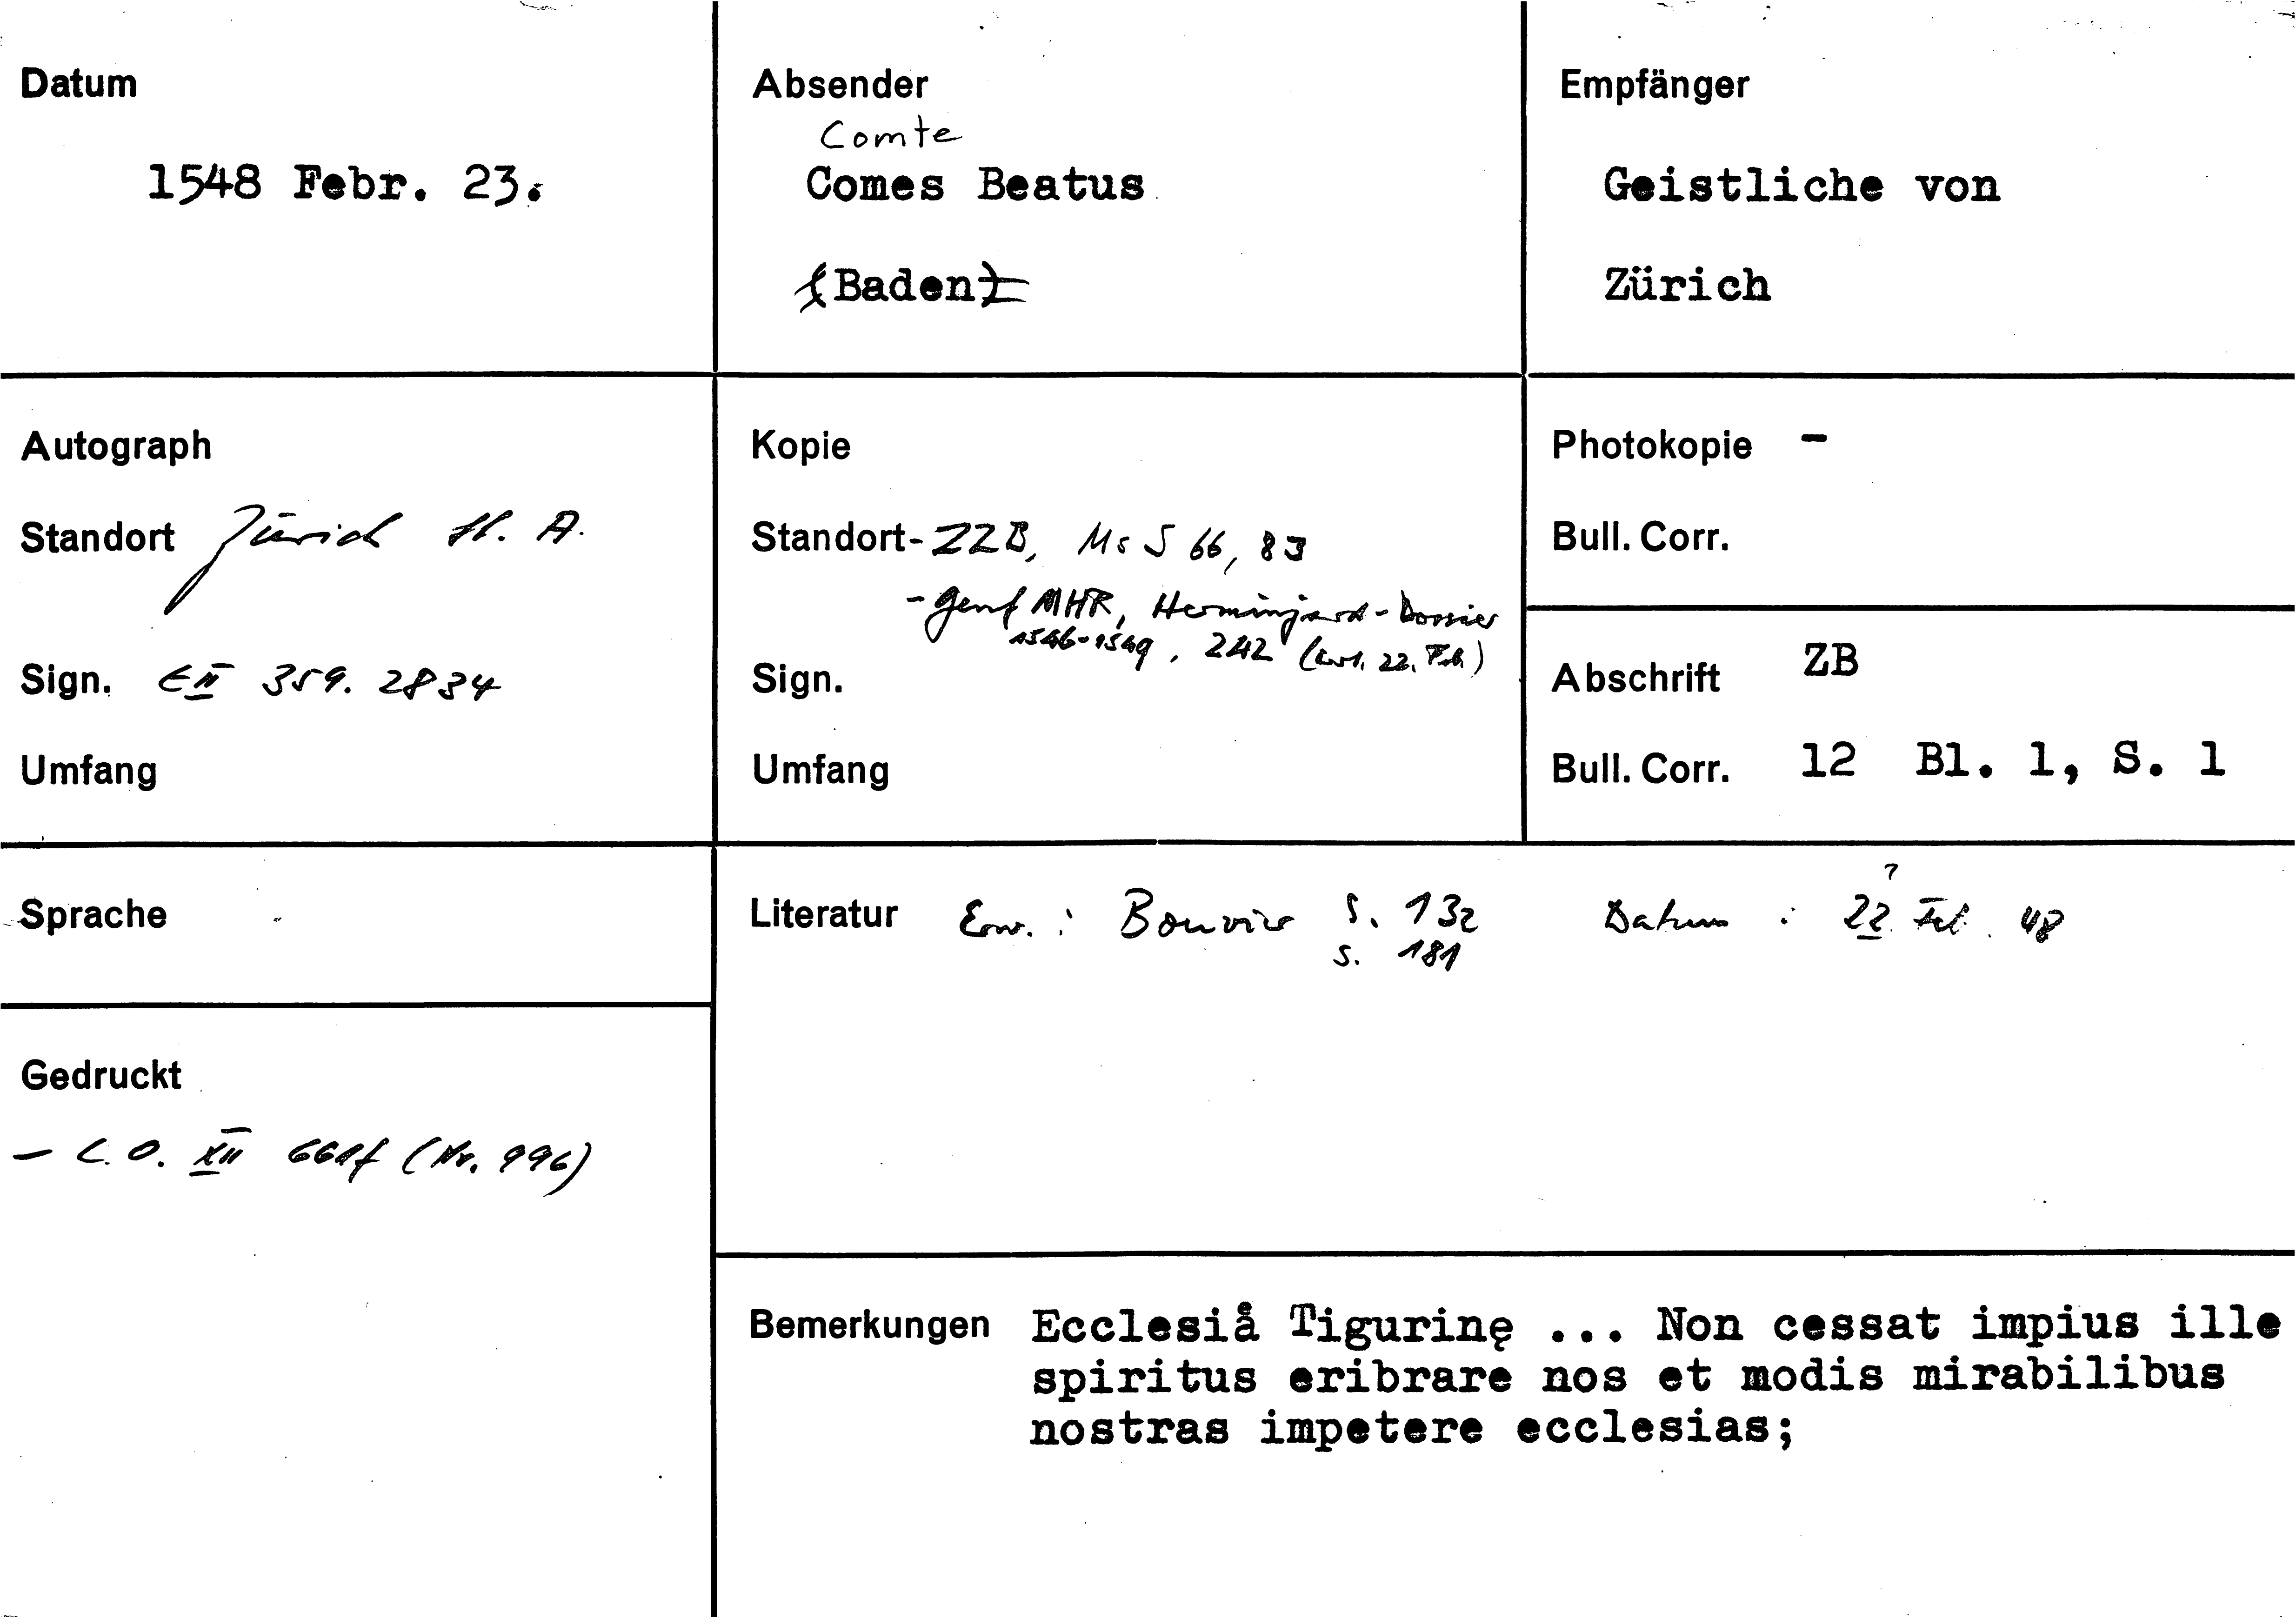 Datum
1548 Febr. 23.
Absender
Comte
Comes Beatus
(Baden)
Empfänger
Geistliche von
Zürich
Autograph
Standort Zürich St. A.
Sign. E II 359. 2834
Umfang
Kopie
Standort - ZZB, Ms S 66, 83
- Genf MHR, Herminjard-Dossier
1546-1549, 242 ( 22. Feb.)
Sign.
Umfang
Photokopie -
Bull. Corr.
Abschrift ZB
Bull. Corr. 12 Bl. 1, S. 1
Sprache
Gedruckt
- C. O. XII 661f (Nr. 996)
Literatur Erw. : Bouvier S. 132 Datum : 22.? Feb. 48
S. 181
Bemerkungen Ecclesiå Tigurinę ... Non cessat impius ille
spiritus eribrare nos et modis mirabilibus
nostras impetere ecclesias;